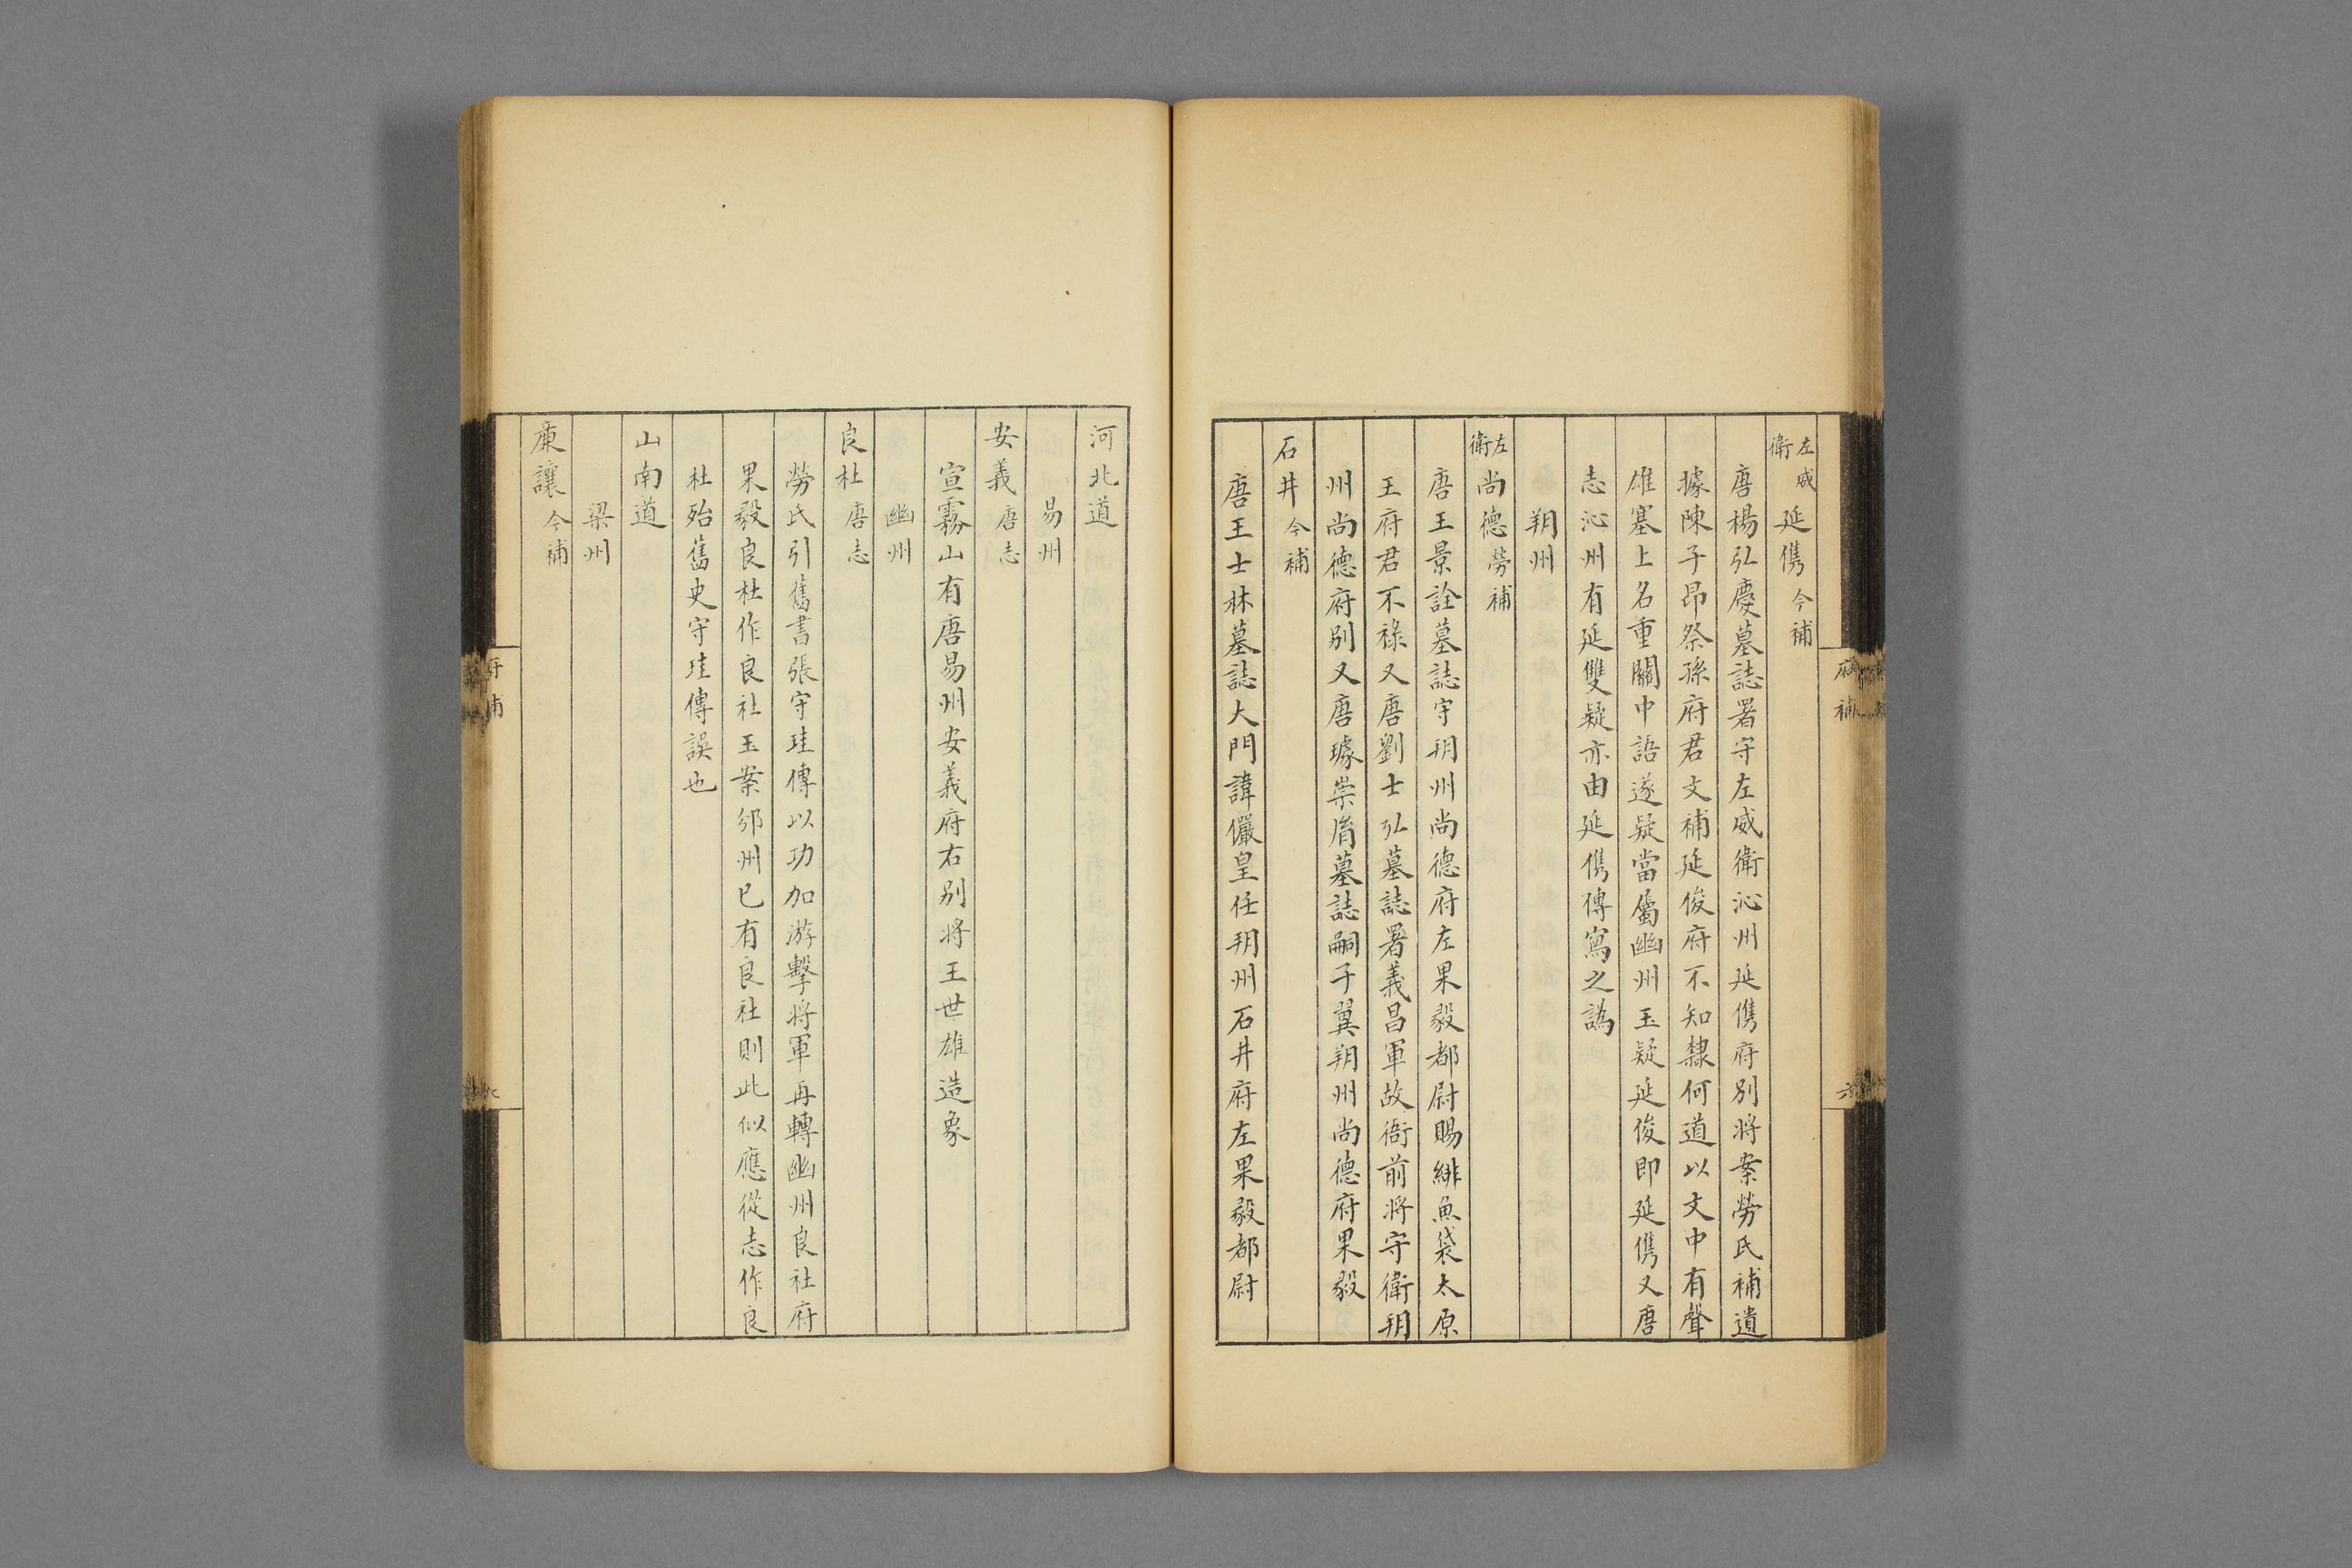 左威衛延儁今補
唐楊弘慶墓誌署守左威衛沁州延儁府別將案勞氏補遺
據陳子昂祭孫府君文補延俊府不知隸何道以文中有聲
雄塞上名重關中語遂疑當屬幽州玉疑延俊即延儁又唐
志沁州有延雙疑亦由延儁傳寫之譌
朔州
左衛尚德勞補
唐王景詮墓誌守朔州尚德府左果毅都尉賜緋魚袋太原
王府君不祿又唐劉士弘墓誌署義昌軍故衙前將守衛朔
州尚德府別又唐璩崇胤墓誌嗣子翼朔州尚德府果毅
石井今補
唐王士林墓誌大門諱儼皇任朔州石井府左果毅都尉
府補
六
河北道
易州
安義唐志
宣霧山有唐易州安義府右別將王世雄造象
幽州
良杜唐志
勞氏引舊書張守珪傳以功加游擊將軍再轉幽州良社府
果毅良杜作良社玉案邠州已有良社則此似應從志作良
杜殆舊史守珪傳誤也
山南道
梁州
廉讓今補